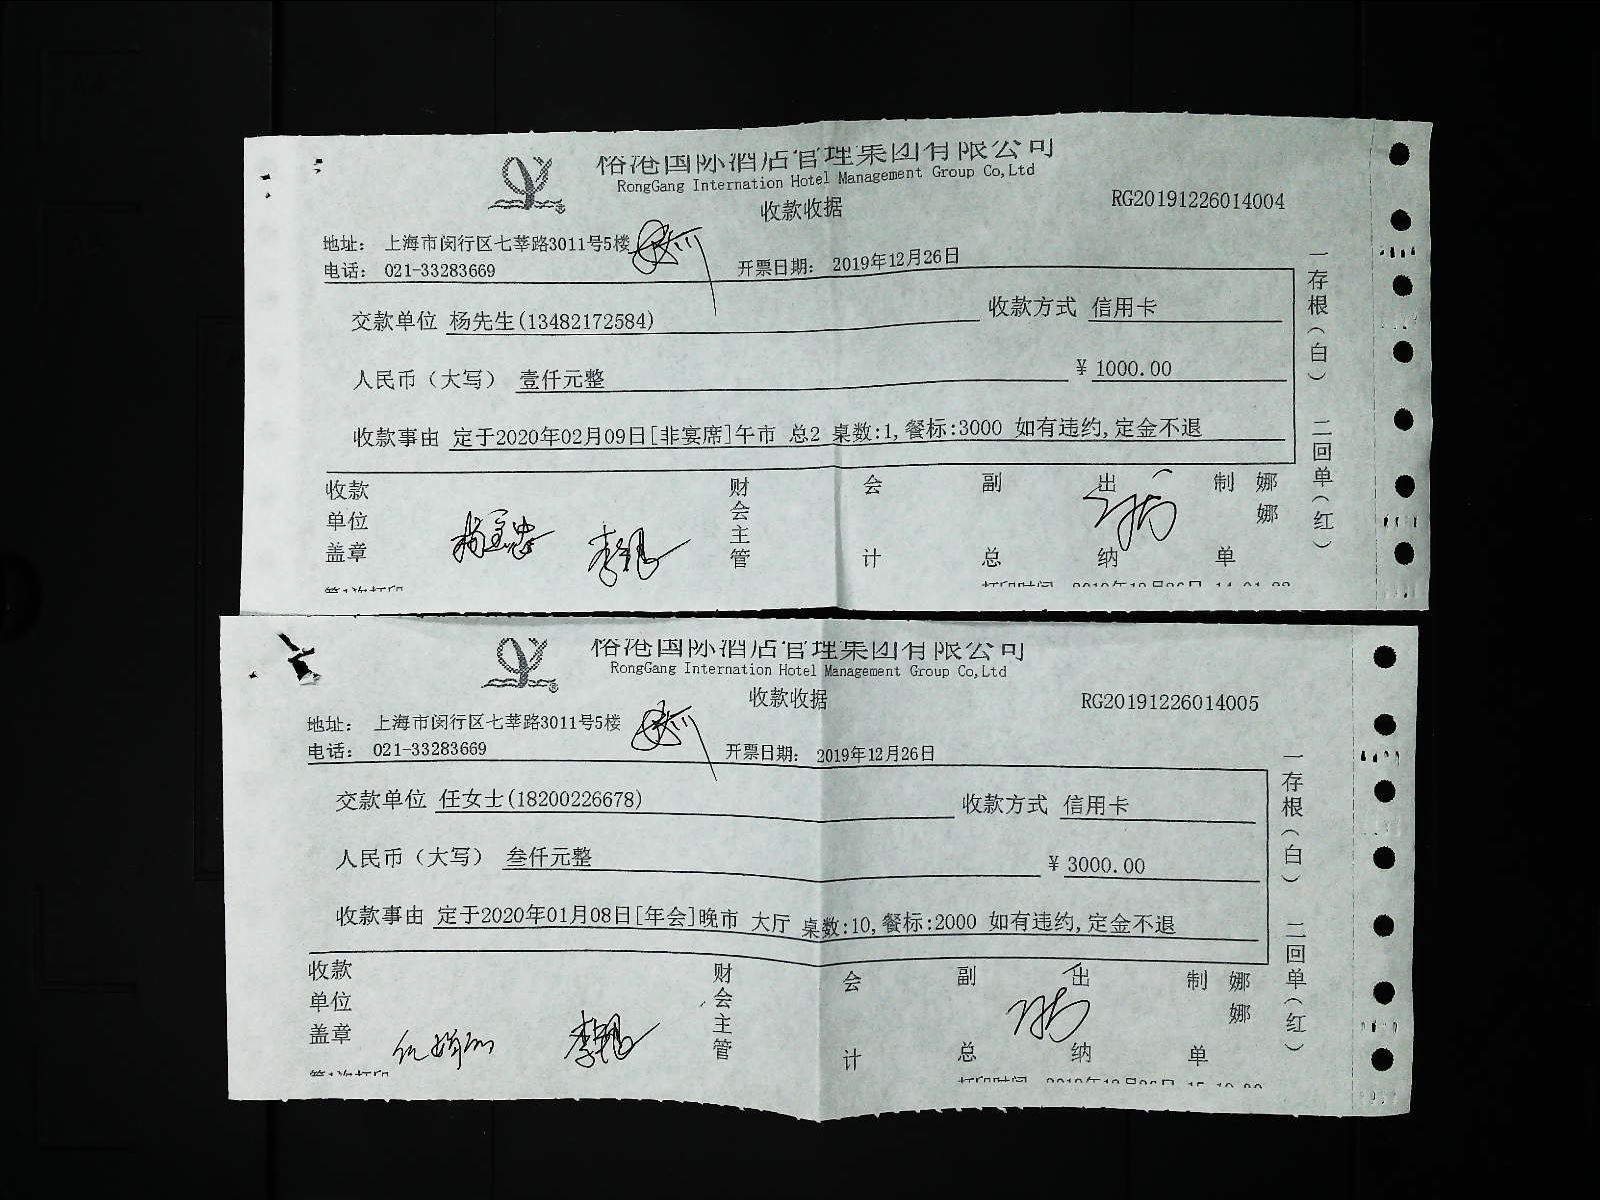 裕港国际酒店管理集团有限公司
RongGang Internation Hotel Management Group Co,Ltd
收款收据
RG20191226014004
地址： 上海市闵行区七莘路3011号5楼
电话： 021-33283669
开票日期： 2019年12月26日
交款单位 杨先生(13482172584)
收款方式 信用卡
人民币（大写） 壹仟元整
¥ 1000.00
收款事由 定于2020年02月09日[非宴席]午市 总2 桌数:1,餐标:3000 如有违约,定金不退
一存根（白） 二回单（红）
收款单位盖章
财会主管
会计
副总
出纳
制单
娜娜
第1次打印
打印时间 2019年12月26日
裕港国际酒店管理集团有限公司
RongGang Internation Hotel Management Group Co,Ltd
收款收据
RG20191226014005
地址： 上海市闵行区七莘路3011号5楼
电话： 021-33283669
开票日期： 2019年12月26日
交款单位 任女士(18200226678)
收款方式 信用卡
人民币（大写） 叁仟元整
¥ 3000.00
收款事由 定于2020年01月08日[年会]晚市 大厅 桌数:10,餐标:2000 如有违约,定金不退
一存根（白） 二回单（红）
收款单位盖章
财会主管
会计
副总
出纳
制单
娜娜
第1次打印
打印时间 2019年12月26日